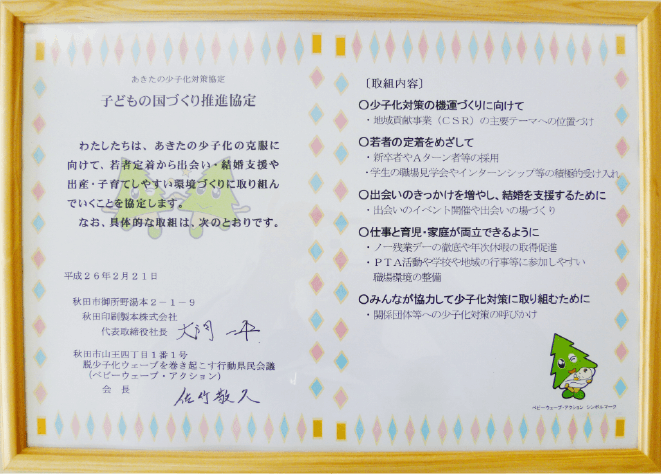 あきたの少子化対策協定
子どもの国づくり推進協定
わたしたちは、あきたの少子化の克服に
向けて、若者定着から出会い・結婚支援や
出産・子育てしやすい環境づくりに取り組ん
でいくことを協定します。
なお、具体的な取組は、次のとおりです。
平成26年2月21日
秋田市御所野湯本2-1-9
秋田印刷製本株式会社
代表取締役社長 大門 一平
秋田市山王四丁目1番1号
脱少子化ウェーブを巻き起こす行動県民会議
(ベビーウェーブ・アクション)
会 長 佐竹敬久
〔取組内容〕
○少子化対策の機運づくりに向けて
・地域貢献事業（CSR）の主要テーマへの位置づけ
○若者の定着をめざして
・新卒者やAターン者等の採用
・学生の職場見学会やインターンシップ等の積極的受け入れ
○出会いのきっかけを増やし、結婚を支援するために
・出会いのイベント開催や出会いの場づくり
○仕事と育児・家庭が両立できるように
・ノー残業デーの徹底や年次休暇の取得促進
・PTA活動や学校や地域の行事等に参加しやすい
職場環境の整備
○みんなが協力して少子化対策に取り組むために
・関係団体等への少子化対策の呼びかけ
ベビーウェーブ・アクション シンボルマーク